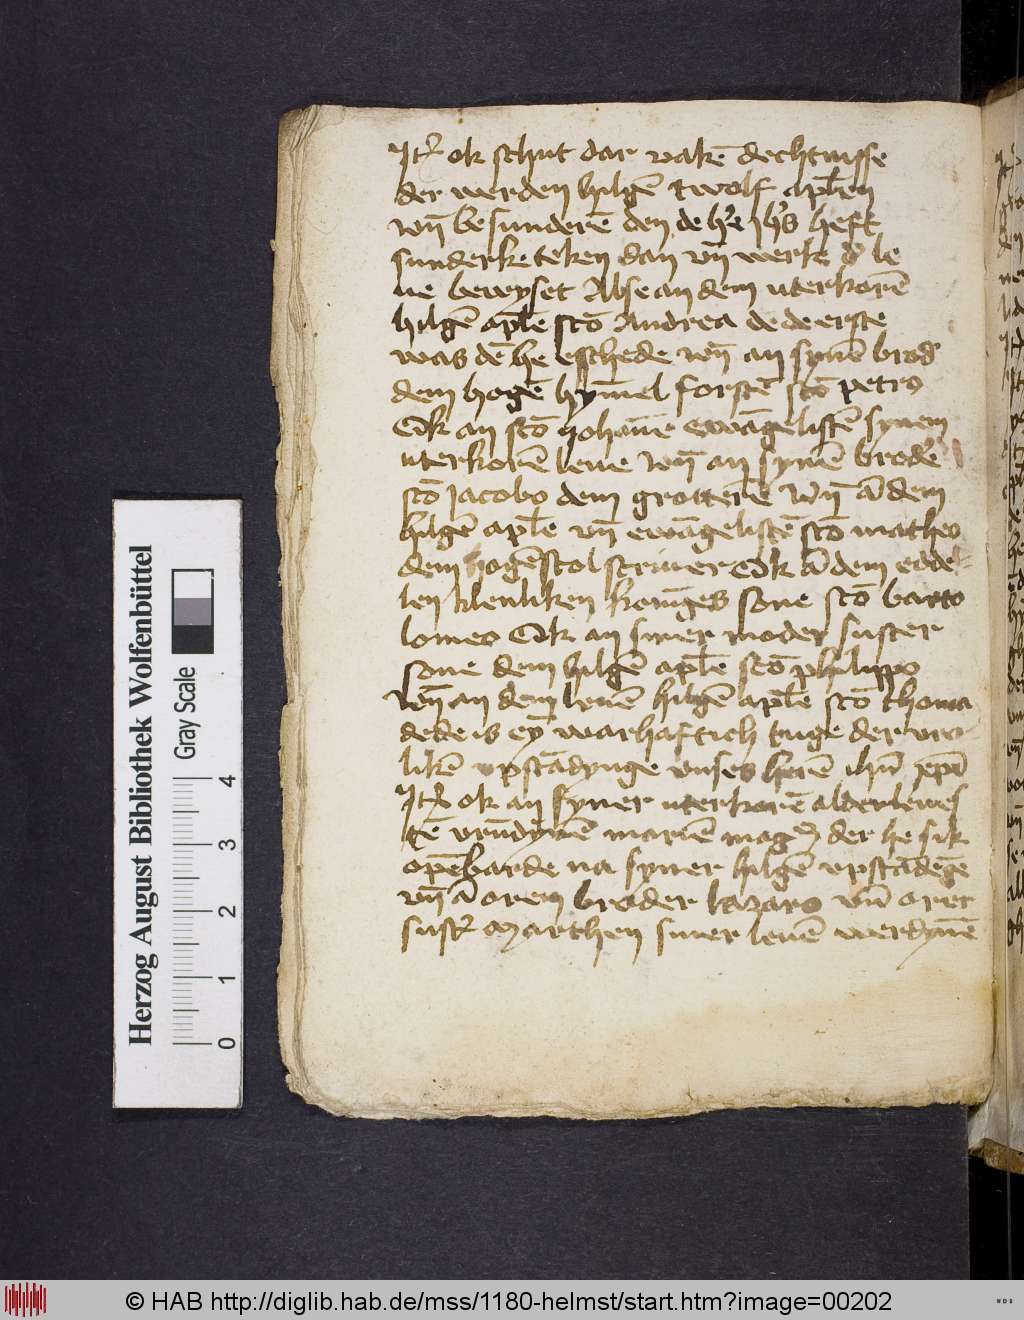 Itē ok schut dar vakē dechtnisse
der werden hilgē twolf aplen
vn̄ besunderē den de h'e ih's heft
sunderke teken dan vn̄ werke d' le
ue bewyset Alse an dem uterkorē
hilgē aplē scō Andrea de de erste
was dē he eschede vn̄ an synē brod'
dem hogē hȳmel forstē scō petro
Ok an scō Johānē ewāgelistē synem
uterkorē leue vn̄ an synē brod'e
scō Jacobo dem grotterē vn̄ ā dem
hilgē aplē vn̄ ewāgelistē scō matheo
dem hogē stol scriuer Ok ā dem edde
len klenliken konīges sone scō barto
lomeo Ok an siner moder suster
sone dem hilgē aplē scō philippo
vn̄ an dem leuē hilgē aplē scō thoma
de de is eȳ warhaftich tuge der vro
likē vpstādynge vnses herē ihū xpī
Itē ok an syner uterkorē alderleues
tē vrūdȳnē mariē magd' der he sik
opēbarde na syner hilgē vpstādegē
vn̄ ā orem broder lazaro vn̄ orer
sust' Marthen siner leuē werdynē
Herzog August Bibliothek Wolfenbüttel
Gray Scale
0 1 2 3 4
© HAB http://diglib.hab.de/mss/1180-helmst/start.htm?image=00202